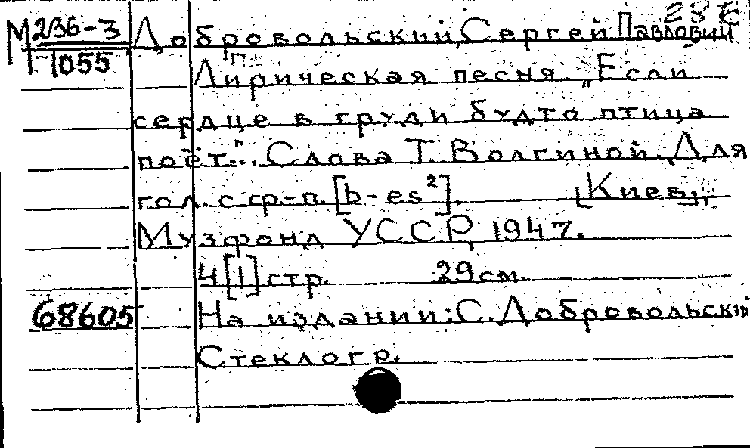 М 236-3
1055
Добровольский, Сергей Павлович
Лирическая песня „Если
сердце в груди будто птица
поёт"... Слова Т. Волгиной. Для
гол. с ф-п. [b-es²]. [Киев],
Музфонд УССР, 1947.
4 [1] стр. 29 см.
68605 На издании: С. Добровольский
Стеклогр.